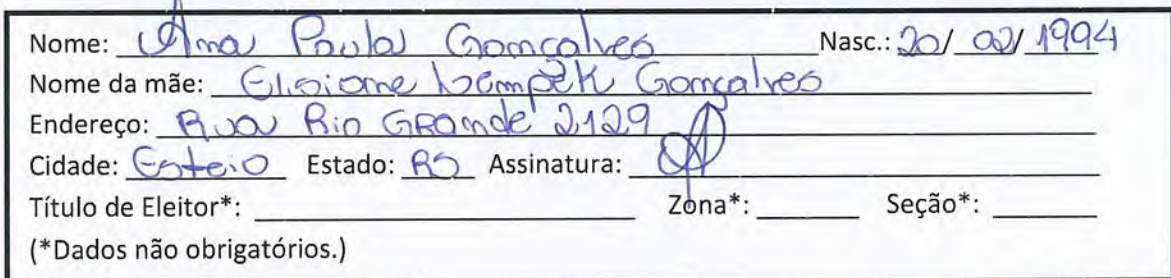 Nome: Ana Paula Gonçalves Nasc.: 20/ 02/ 1994
Nome da mãe: Elisiane Gonçalves
Endereço: Rua Rio GRande 2129
Cidade: Esteio Estado: RS Assinatura:
Título de Eleitor*: Zona*: Seção*:
(*Dados não obrigatórios.)